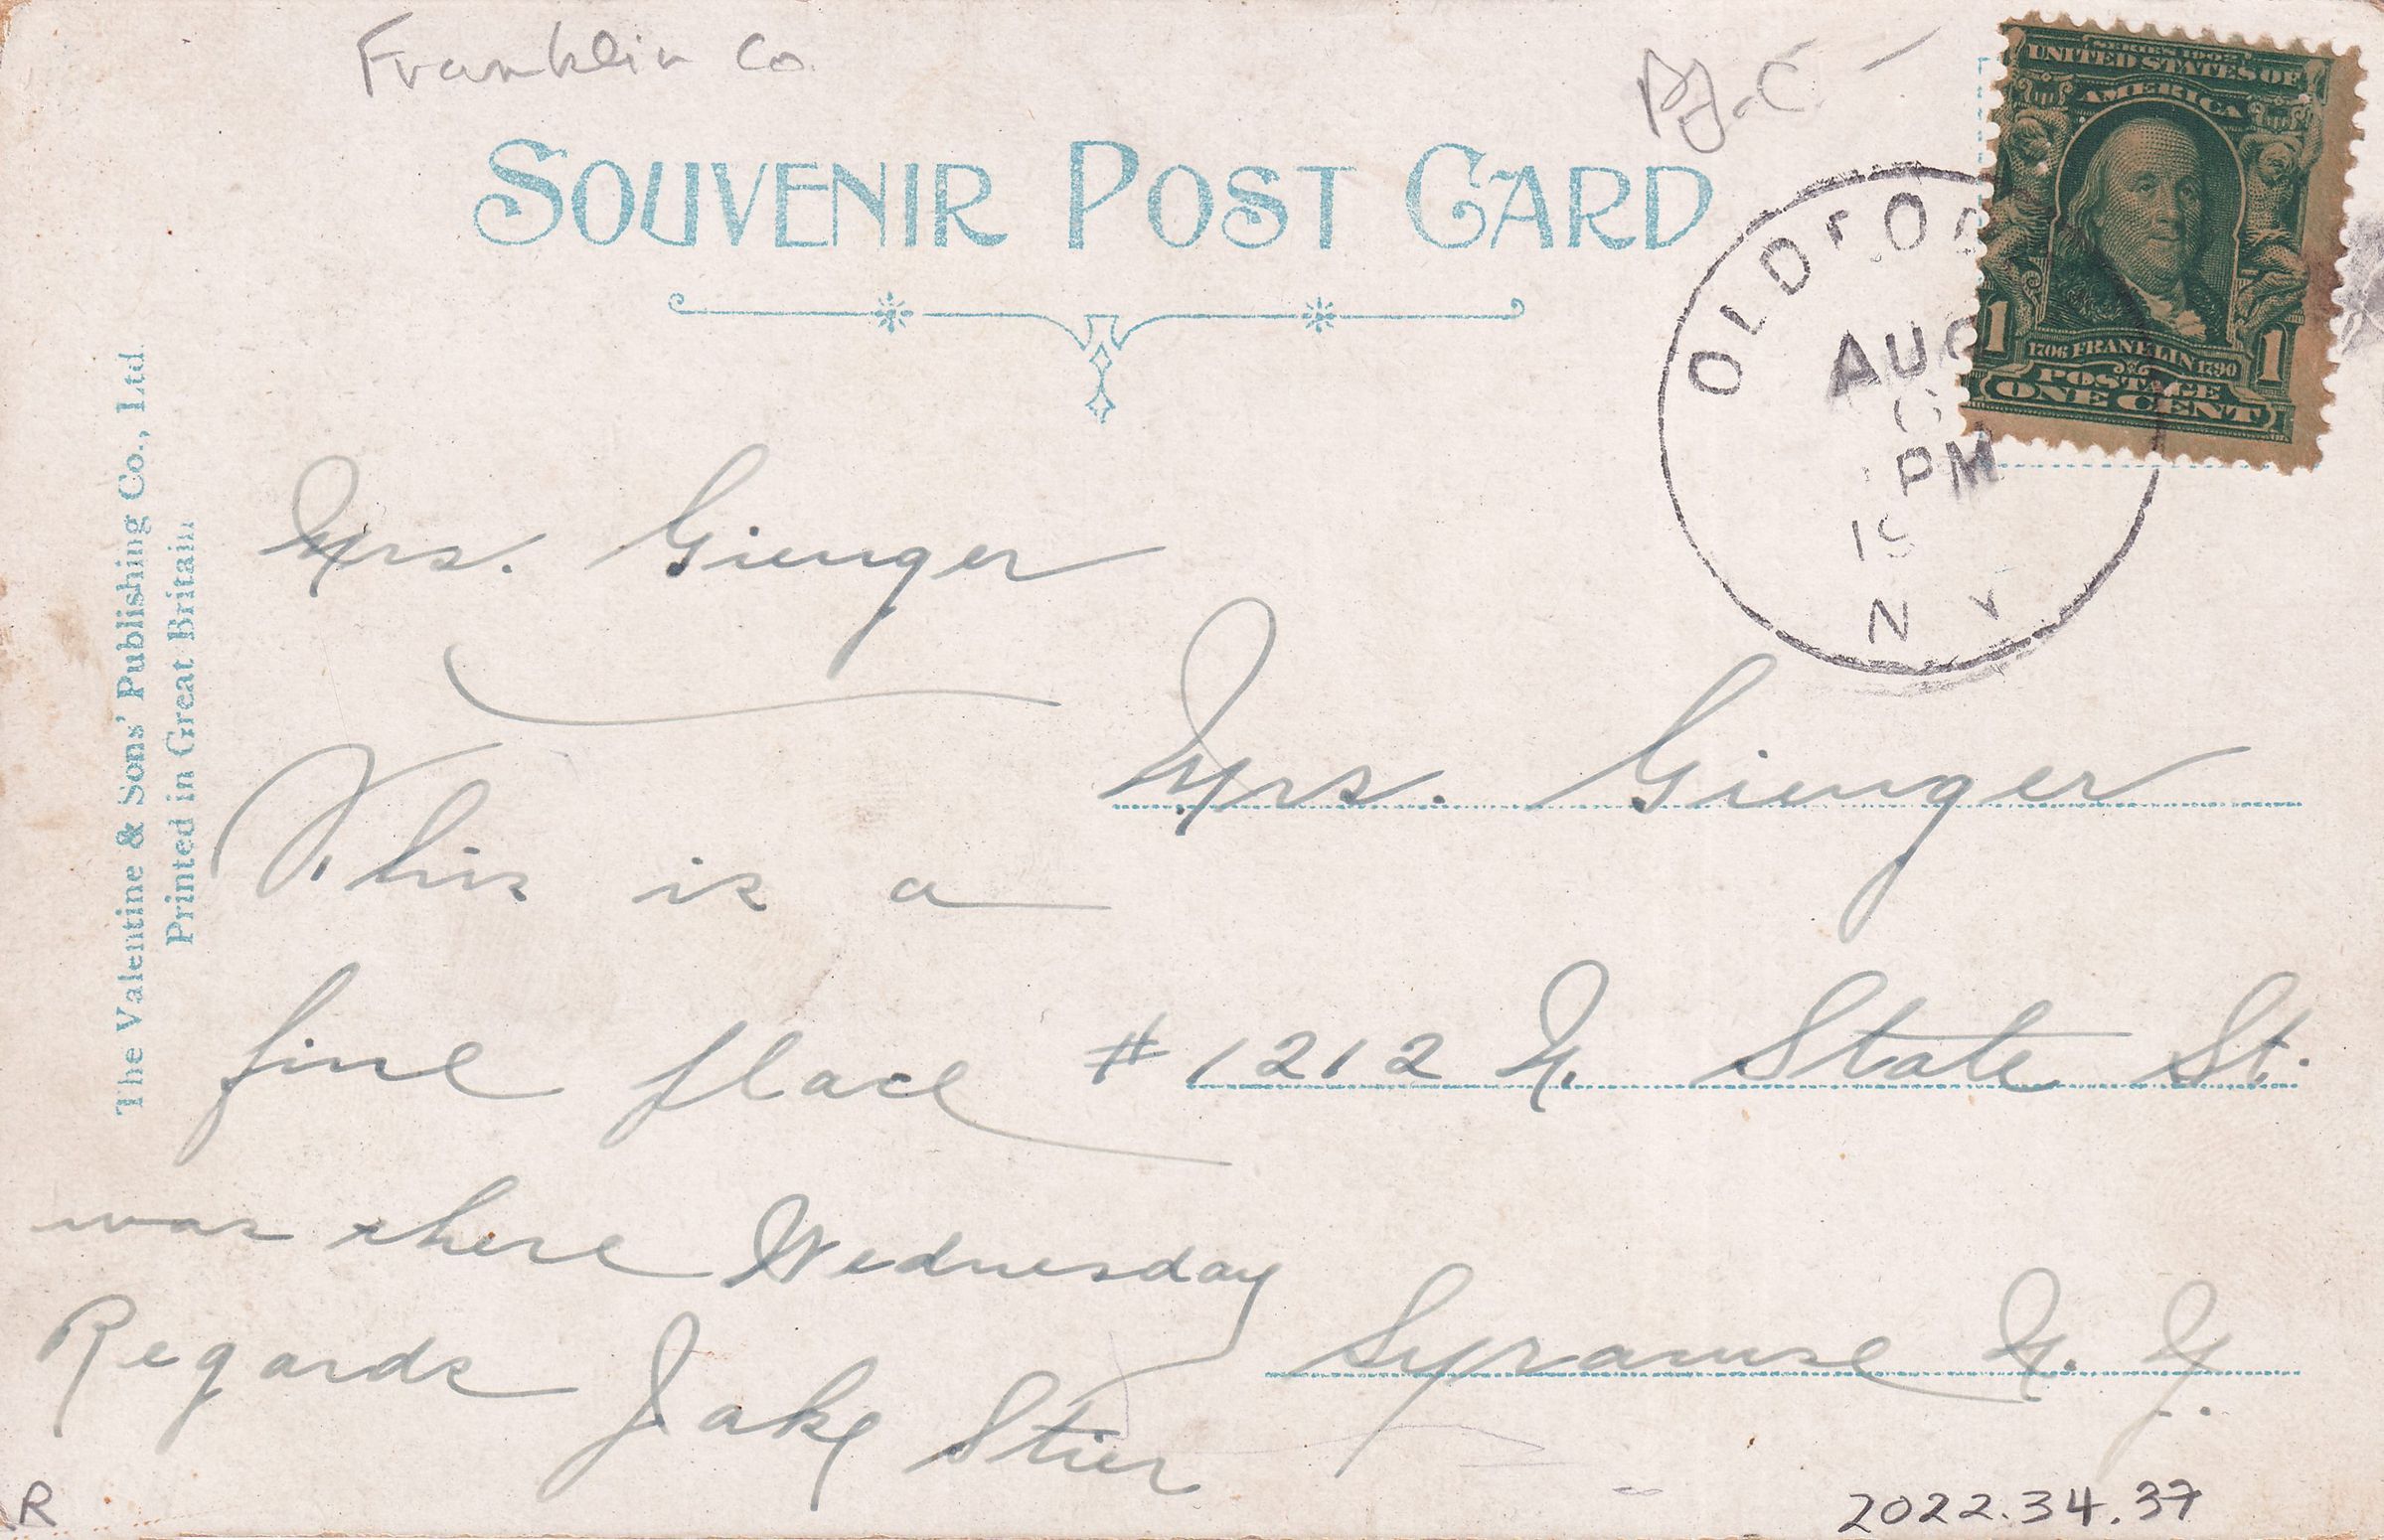 Franklin Co.
SOUVENIR POST CARD
SERIES 1902
UNITED STATES OF
AMERICA
1 1
1706 FRANKLIN 1790
POSTAGE
ONE CENT
AUG
PM
N Y
The Valentine & Sons' Publishing Co., Ltd.
Printed in Great Britain
Mrs. Gienger
This is a
fine place
was there Wednesday
Regards Jake Stier
Mrs. Gienger
# 1212 N. State St.
Syracuse N. Y.
R
2022.34.37